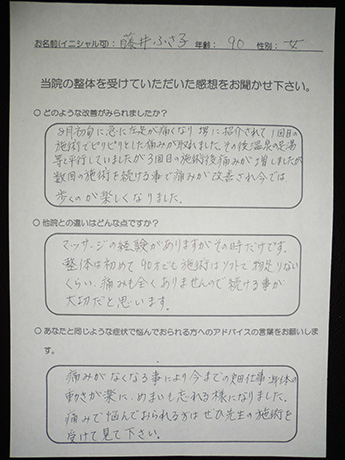 お名前(イニシャル可): 藤井ふさ子 年齢: 90 性別: 女
当院の整体を受けていただいた感想をお聞かせ下さい。
○ どのような改善がみられましたか?
8月初旬に急に左足が痛くなり 甥に紹介されて1回目の
施術でピリピリとした痛みが取れました。その後温泉の足湯
等と平行していましたが3回目の施術後痛みが増しましたが
数回の施術を続ける事で痛みが改善され今では
歩くのが楽しくなりました。
○ 他院との違いはどんな点ですか?
マッサージの経験がありますがその時だけです。
整体は初めて 90才でも施術はソフトで物足りない
くらい、痛みも全くありませんので続ける事が
大切だと思います。
○ あなたと同じような症状で悩んでおられる方へのアドバイスの言葉をお願いしま
す。
痛みがなくなる事により今までの畑仕事、身体の
動きが楽に、めまいも忘れる様になりました。
痛みで悩んでおられる方はぜひ先生の施術を
受けて見て下さい。